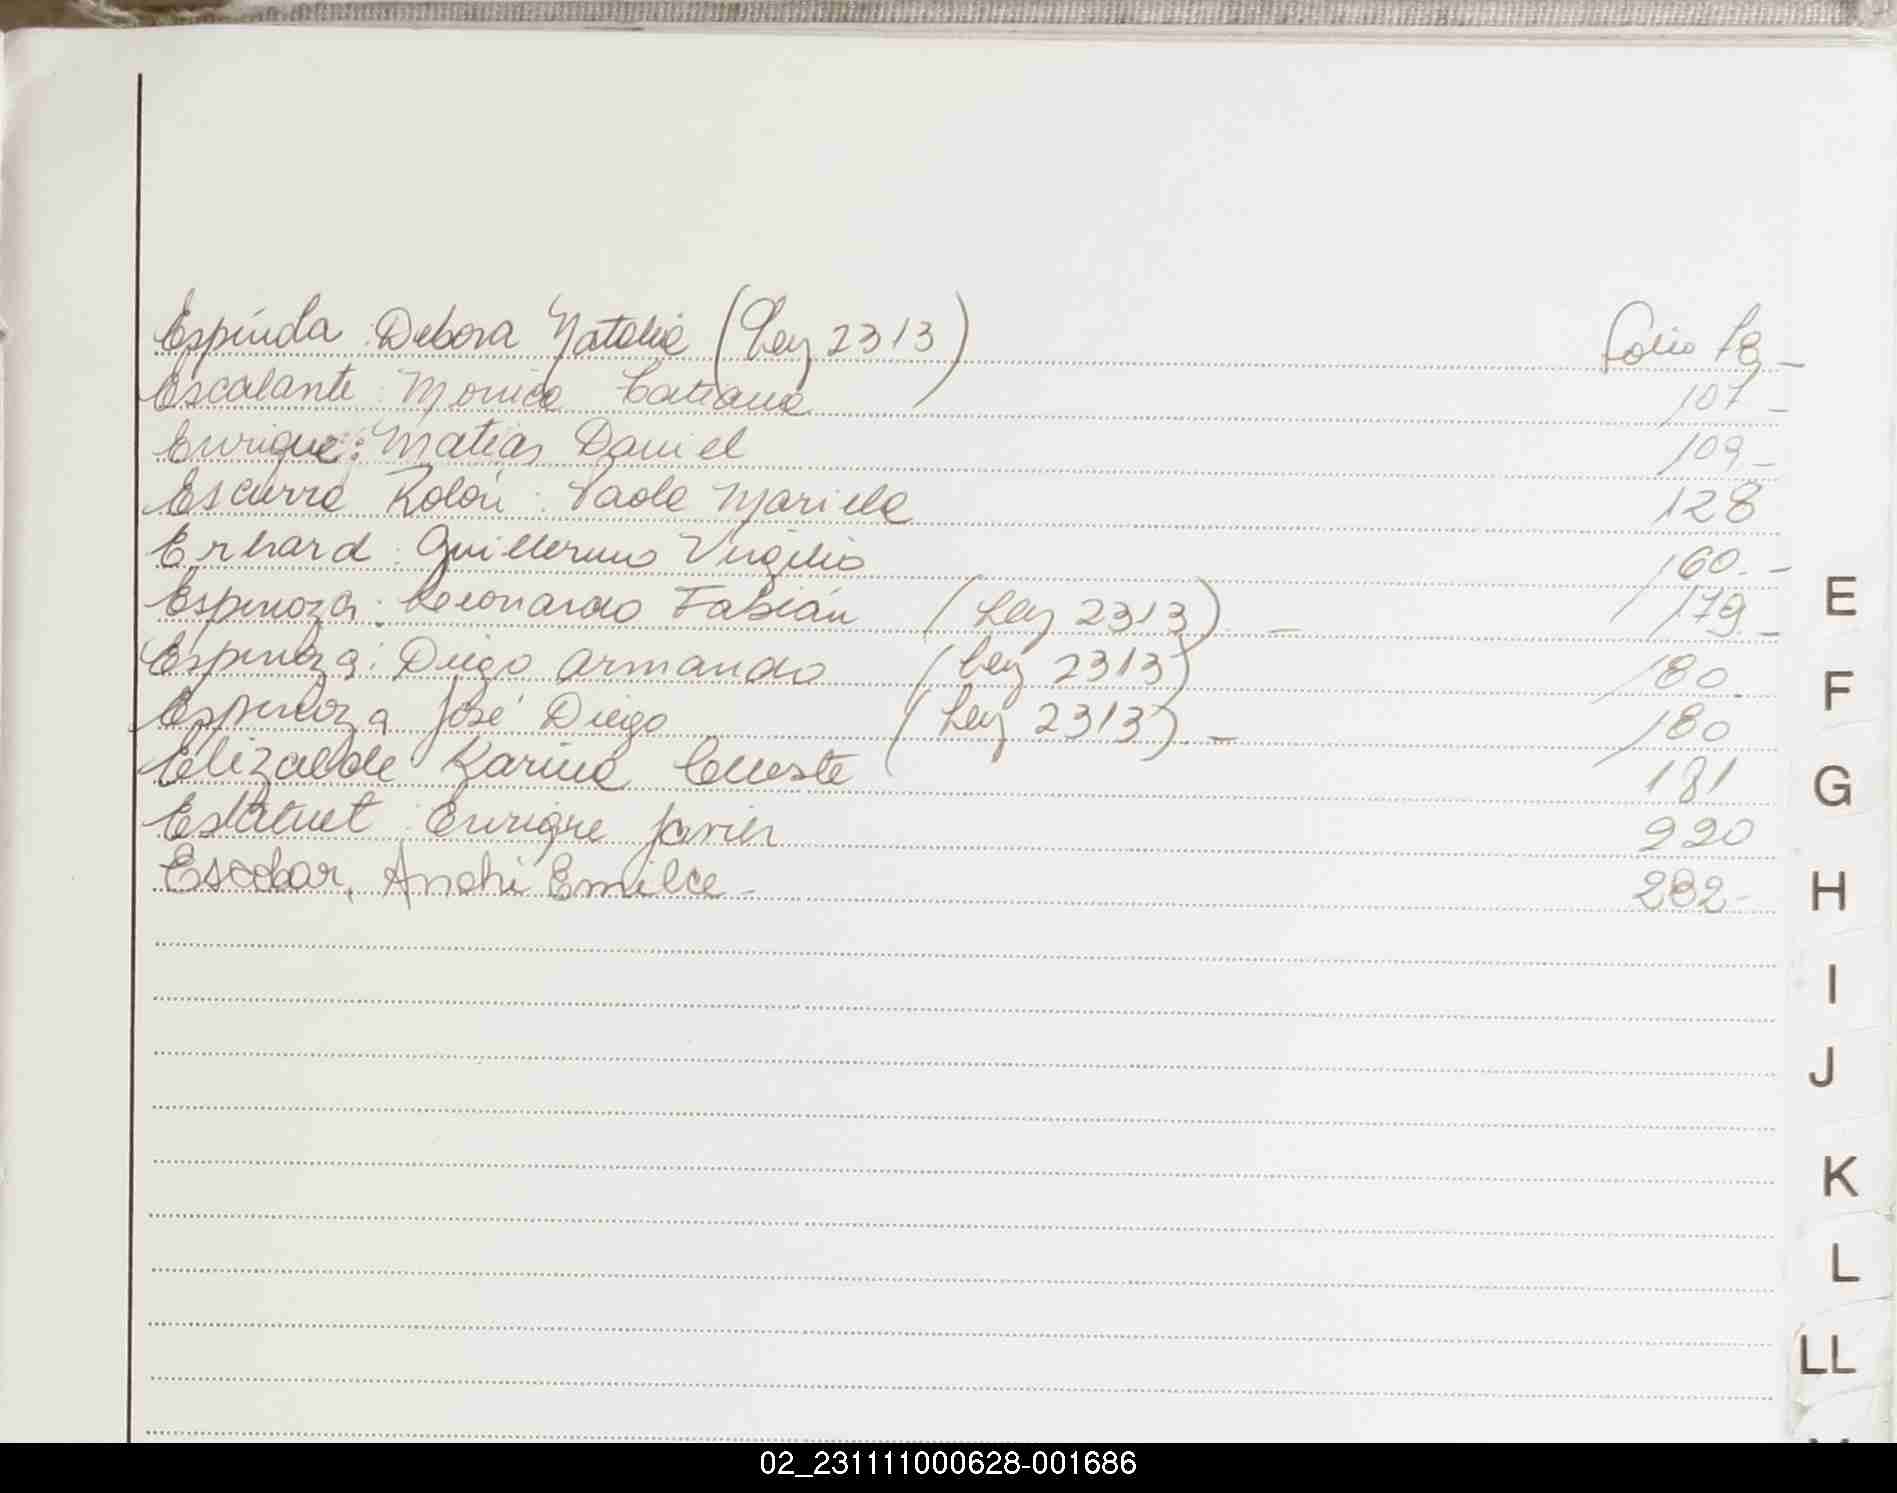 Espínola Debora Natalia (Ley 2313) Folio 18 -
Escalante : Monica Tatiana 107 -
Enrique : Matias Daniel 109 -
Escurra Rolón : Paola Mariela 128
Erhard : Guillermo Virgilio 160. -
Espinoza : Leonardo Fabián (Ley 2313) - 179. -
Espinoza : Diego Armando (Ley 2313) 180.
Espinoza José Diego (Ley 2313) - 180
Elizalde Karina Celeste 181
Estatuet : Enrique Javier 220
Escobar, Emilce - 232 -
E
F
G
H
I
J
K
L
LL
02_231111000628-001686